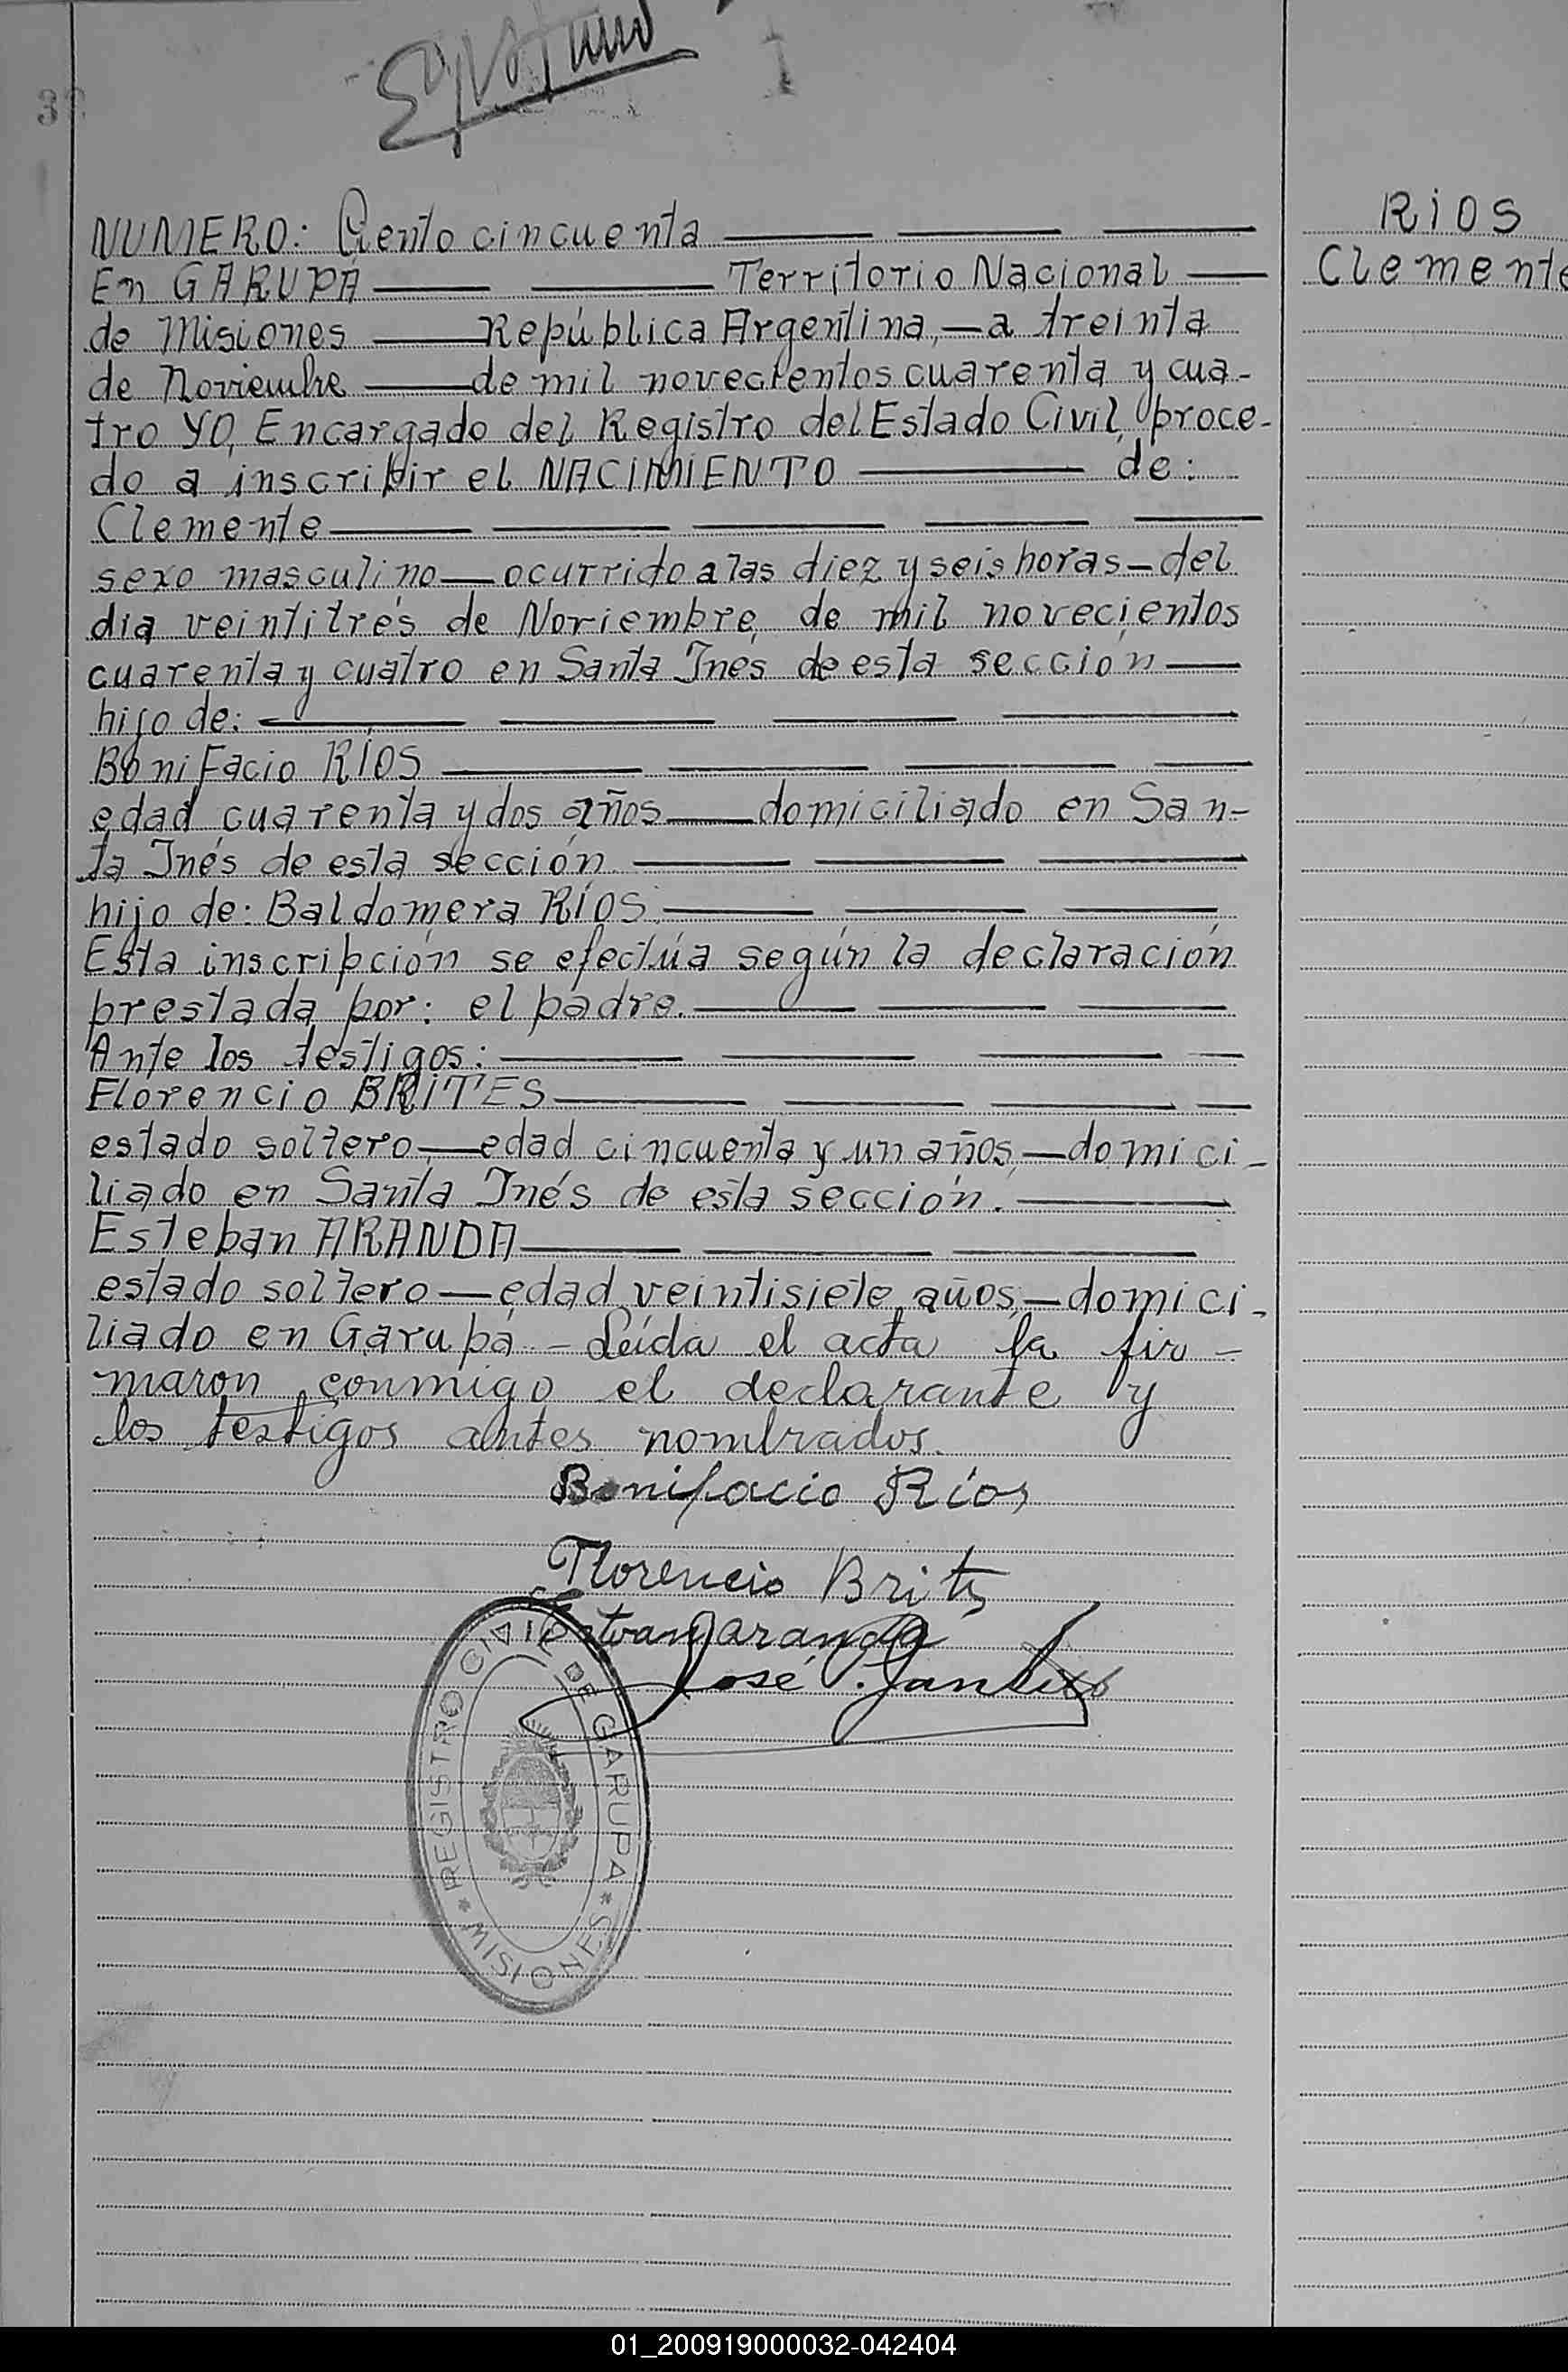 NUMERO: Ciento cincuenta
En GARUPÁ Territorio Nacional
de Misiones República Argentina, a treinta
de Noviembre de mil novecientos cuarenta y cua-
tro YO, Encargado del Registro del Estado Civil, proce-
do a inscribir el NACIMIENTO de:
Clemente
sexo masculino ocurrido a las diez y seis horas del
día veintitrés de Noviembre, de mil novecientos
cuarenta y cuatro en Santa Inés de esta sección
hijo de:
BoniFacio RÍOS
edad cuarenta y dos años domiciliado en San-
ta Inés de esta sección.
hijo de: Baldomera RÍOS.
Esta inscripción se efectúa según la declaración
prestada por: el padre.
Ante los testigos:
Florencio BRITES
estado soltero, edad cincuenta y un años, domici-
liado en Santa Inés de esta sección.
Esteban ARANDA
estado soltero edad veintisiete años, domici-
liado en Garupá - Leída el acta la fir-
maron conmigo el declarante y
los testigos antes nombrados.
Bonifacio Ríos
Florencio Brites
Estevan aranda
José P.
REGISTRO CIVIL DE GARUPA * MISIONES *
RÍOS
Clemente
01_200919000032-042404